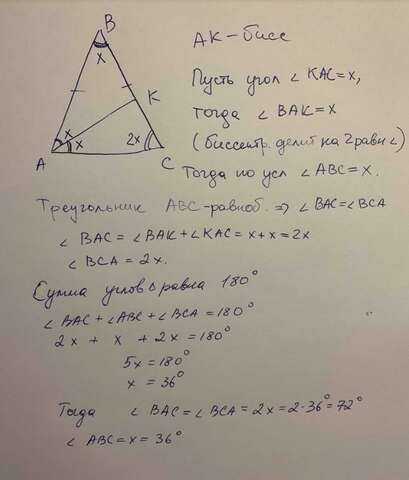 B
x
K
x
x
2x
A
C
AK - бисс
Пусть угол ∠ KAC = x,
тогда ∠ BAK = x
(биссектр. делит на 2 равн ∠)
Тогда по усл ∠ ABC = x.
Треугольник ABC - равноб. ⇒ ∠ BAC = ∠ BCA
∠ BAC = ∠ BAK + ∠ KAC = x + x = 2x
∠ BCA = 2x.
Сумма углов Δ равна 180°
∠ BAC + ∠ ABC + ∠ BCA = 180°
2x + x + 2x = 180°
5x = 180°
x = 36°
Тогда ∠ BAC = ∠ BCA = 2x = 2·36° = 72°
∠ ABC = x = 36°